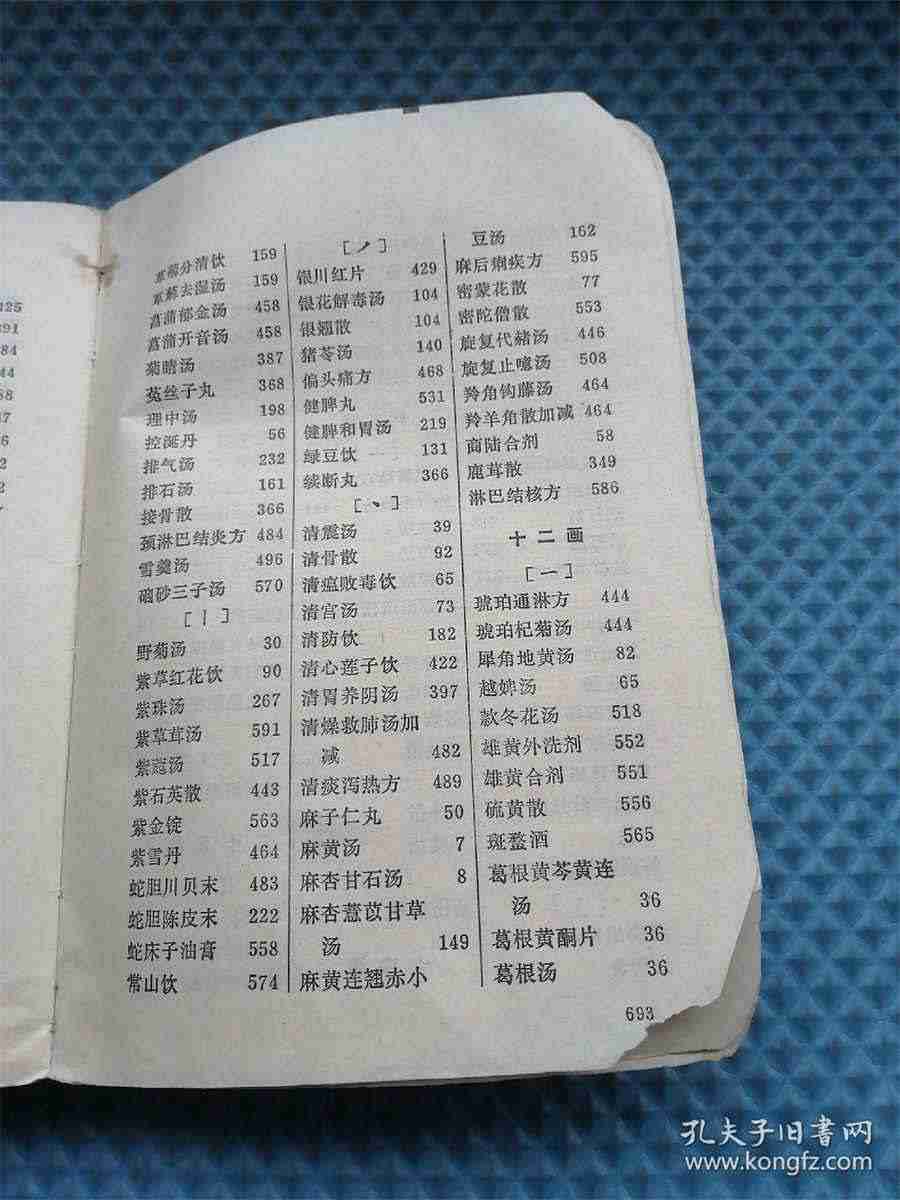 425
391
84
44
萆薢分清饮 159
萆薢去湿汤 159
菖蒲郁金汤 458
菖蒲开音汤 458
菊睛汤 387
菟丝子丸 368
理中汤 198
控涎丹 56
排气汤 232
排石汤 161
接骨散 366
颈淋巴结炎方 484
雪羹汤 496
硇砂三子汤 570
[丨]
野菊汤 30
紫草红花饮 90
紫珠汤 267
紫草茸汤 591
紫蔻汤 517
紫石英散 443
紫金锭 563
紫雪丹 464
蛇胆川贝末 483
蛇胆陈皮末 222
蛇床子油膏 558
常山饮 574
[ノ]
银川红片 429
银花解毒汤 104
银翘散 104
猪苓汤 140
偏头痛方 468
健脾丸 531
健脾和胃汤 219
绿豆饮 131
续断丸 366
[丶]
清震汤 39
清骨散 92
清瘟败毒饮 65
清宫汤 73
清防饮 182
清心莲子饮 422
清胃养阴汤 397
清燥救肺汤加
减 482
清痰泻热方 489
麻子仁丸 50
麻黄汤 7
麻杏甘石汤 8
麻杏薏苡甘草
汤 149
麻黄连翘赤小
豆汤 162
麻后痢疾方 595
密蒙花散 77
密陀僧散 553
旋复代赭汤 446
旋复止噫汤 508
羚角钩藤汤 464
羚羊角散加减 464
商陆合剂 58
鹿茸散 349
淋巴结核方 586
十二画
[一]
琥珀通淋方 444
琥珀杞菊汤 444
犀角地黄汤 82
越婢汤 65
款冬花汤 518
雄黄外洗剂 552
雄黄合剂 551
硫黄散 556
斑蝥酒 565
葛根黄芩黄连
汤 36
葛根黄酮片 36
葛根汤 36
693
孔夫子旧书网
www.kongfz.com